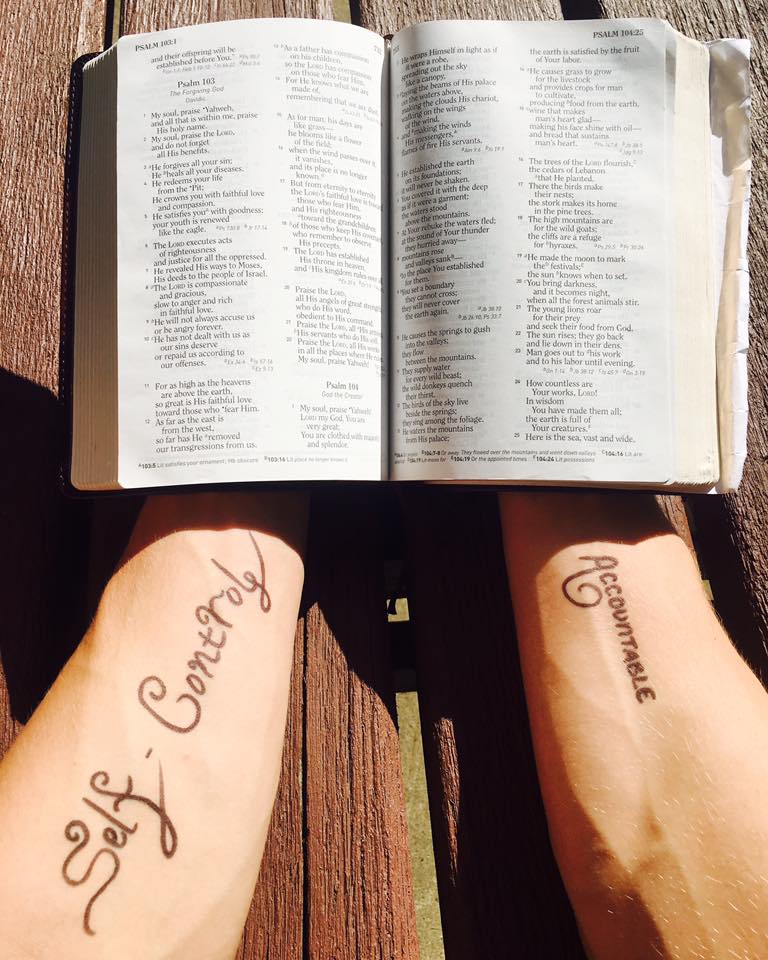 PSALM 103:1
and their offspring will be
established before You."
Psalm 103
The Forgiving God
Davidic.
1 My soul, praise Yahweh,
and all that is within me, praise
His holy name.
2 My soul, praise the LORD,
and do not forget
all His benefits.
3 He forgives all your sin;
He heals all your diseases.
4 He redeems your life
from the Pit;
He crowns you with faithful love
and compassion.
5 He satisfies you with goodness;
your youth is renewed
like the eagle.
6 The LORD executes acts
of righteousness
and justice for all the oppressed.
7 He revealed His ways to Moses,
His deeds to the people of Israel.
8 The LORD is compassionate
and gracious,
slow to anger and rich
in faithful love.
9 He will not always accuse us
or be angry forever.
10 He has not dealt with us as
our sins deserve
or repaid us according to
our offenses.
11 For as high as the heavens
are above the earth,
so great is His faithful love
toward those who fear Him.
12 As far as the east is
from the west,
so far has He removed
our transgressions from us.
13 As a father has compassion
on his children,
so the LORD has compassion
on those who fear Him.
14 For He knows what we are
made of,
remembering that we are
15 As for man, his days are
like grass—
he blooms like a flower
of the field;
16 when the wind passes over it,
it vanishes,
and its place is no longer
known.
17 But from eternity to eternity
the LORD's faithful love is
those who fear Him,
and His righteousness
toward the grandchildren
18 of those who keep His covenant,
who remember to observe
His precepts.
19 The LORD has established
His throne in heaven,
and His kingdom rules over
20 Praise the LORD,
all His angels of great strength,
who do His word,
obedient to His command.
21 Praise the LORD, all His
His servants who do His will.
22 Praise the LORD, all His works
in all the places where He
My soul, praise
Psalm 104
God the Creator
1 My soul, praise Yahweh!
LORD my God, You are
very great;
You are clothed with majesty
and splendor.
PSALM 104:25
He wraps Himself in light as if
it were a robe,
spreading out the sky
like a canopy,
laying the beams of His palace
on the waters above,
making the clouds His chariot,
walking on the wings
of the wind,
and making the winds
His messengers,
flames of fire His servants.
He established the earth
on its foundations;
it will never be shaken.
You covered it with the deep
as if it were a garment;
the waters stood
above the mountains.
At Your rebuke the waters fled;
at the sound of Your thunder
they hurried away—
mountains rose
and valleys sank—
to the place You established
for them.
You set a boundary
they cannot cross;
they will never cover
the earth again.
He causes the springs to gush
into the valleys;
they flow
between the mountains.
They supply water
for every wild beast;
the wild donkeys quench
their thirst.
The birds of the sky live
beside the springs;
they sing among the foliage.
He waters the mountains
from His palace;
the earth is satisfied by the fruit
of Your labor.
14 He causes grass to grow
for the livestock
and provides crops for man
to cultivate,
producing food from the earth,
15 wine that makes
man's heart glad—
making his face shine with oil—
and bread that sustains
man's heart.
16 The trees of the LORD flourish,
the cedars of Lebanon
that He planted.
17 There the birds make
their nests;
the stork makes its home
in the pine trees.
18 The high mountains are
for the wild goats;
the cliffs are a refuge
for hyraxes.
19 He made the moon to mark
the festivals;
the sun knows when to set.
20 You bring darkness,
and it becomes night,
when all the forest animals stir.
21 The young lions roar
for their prey
and seek their food from God.
22 The sun rises; they go back
and lie down in their dens.
23 Man goes out to his work
and to his labor until evening.
24 How countless are
Your works, LORD!
In wisdom
You have made them all;
the earth is full of
Your creatures.
25 Here is the sea, vast and wide,
Self-Control
ACCOUNTABLE